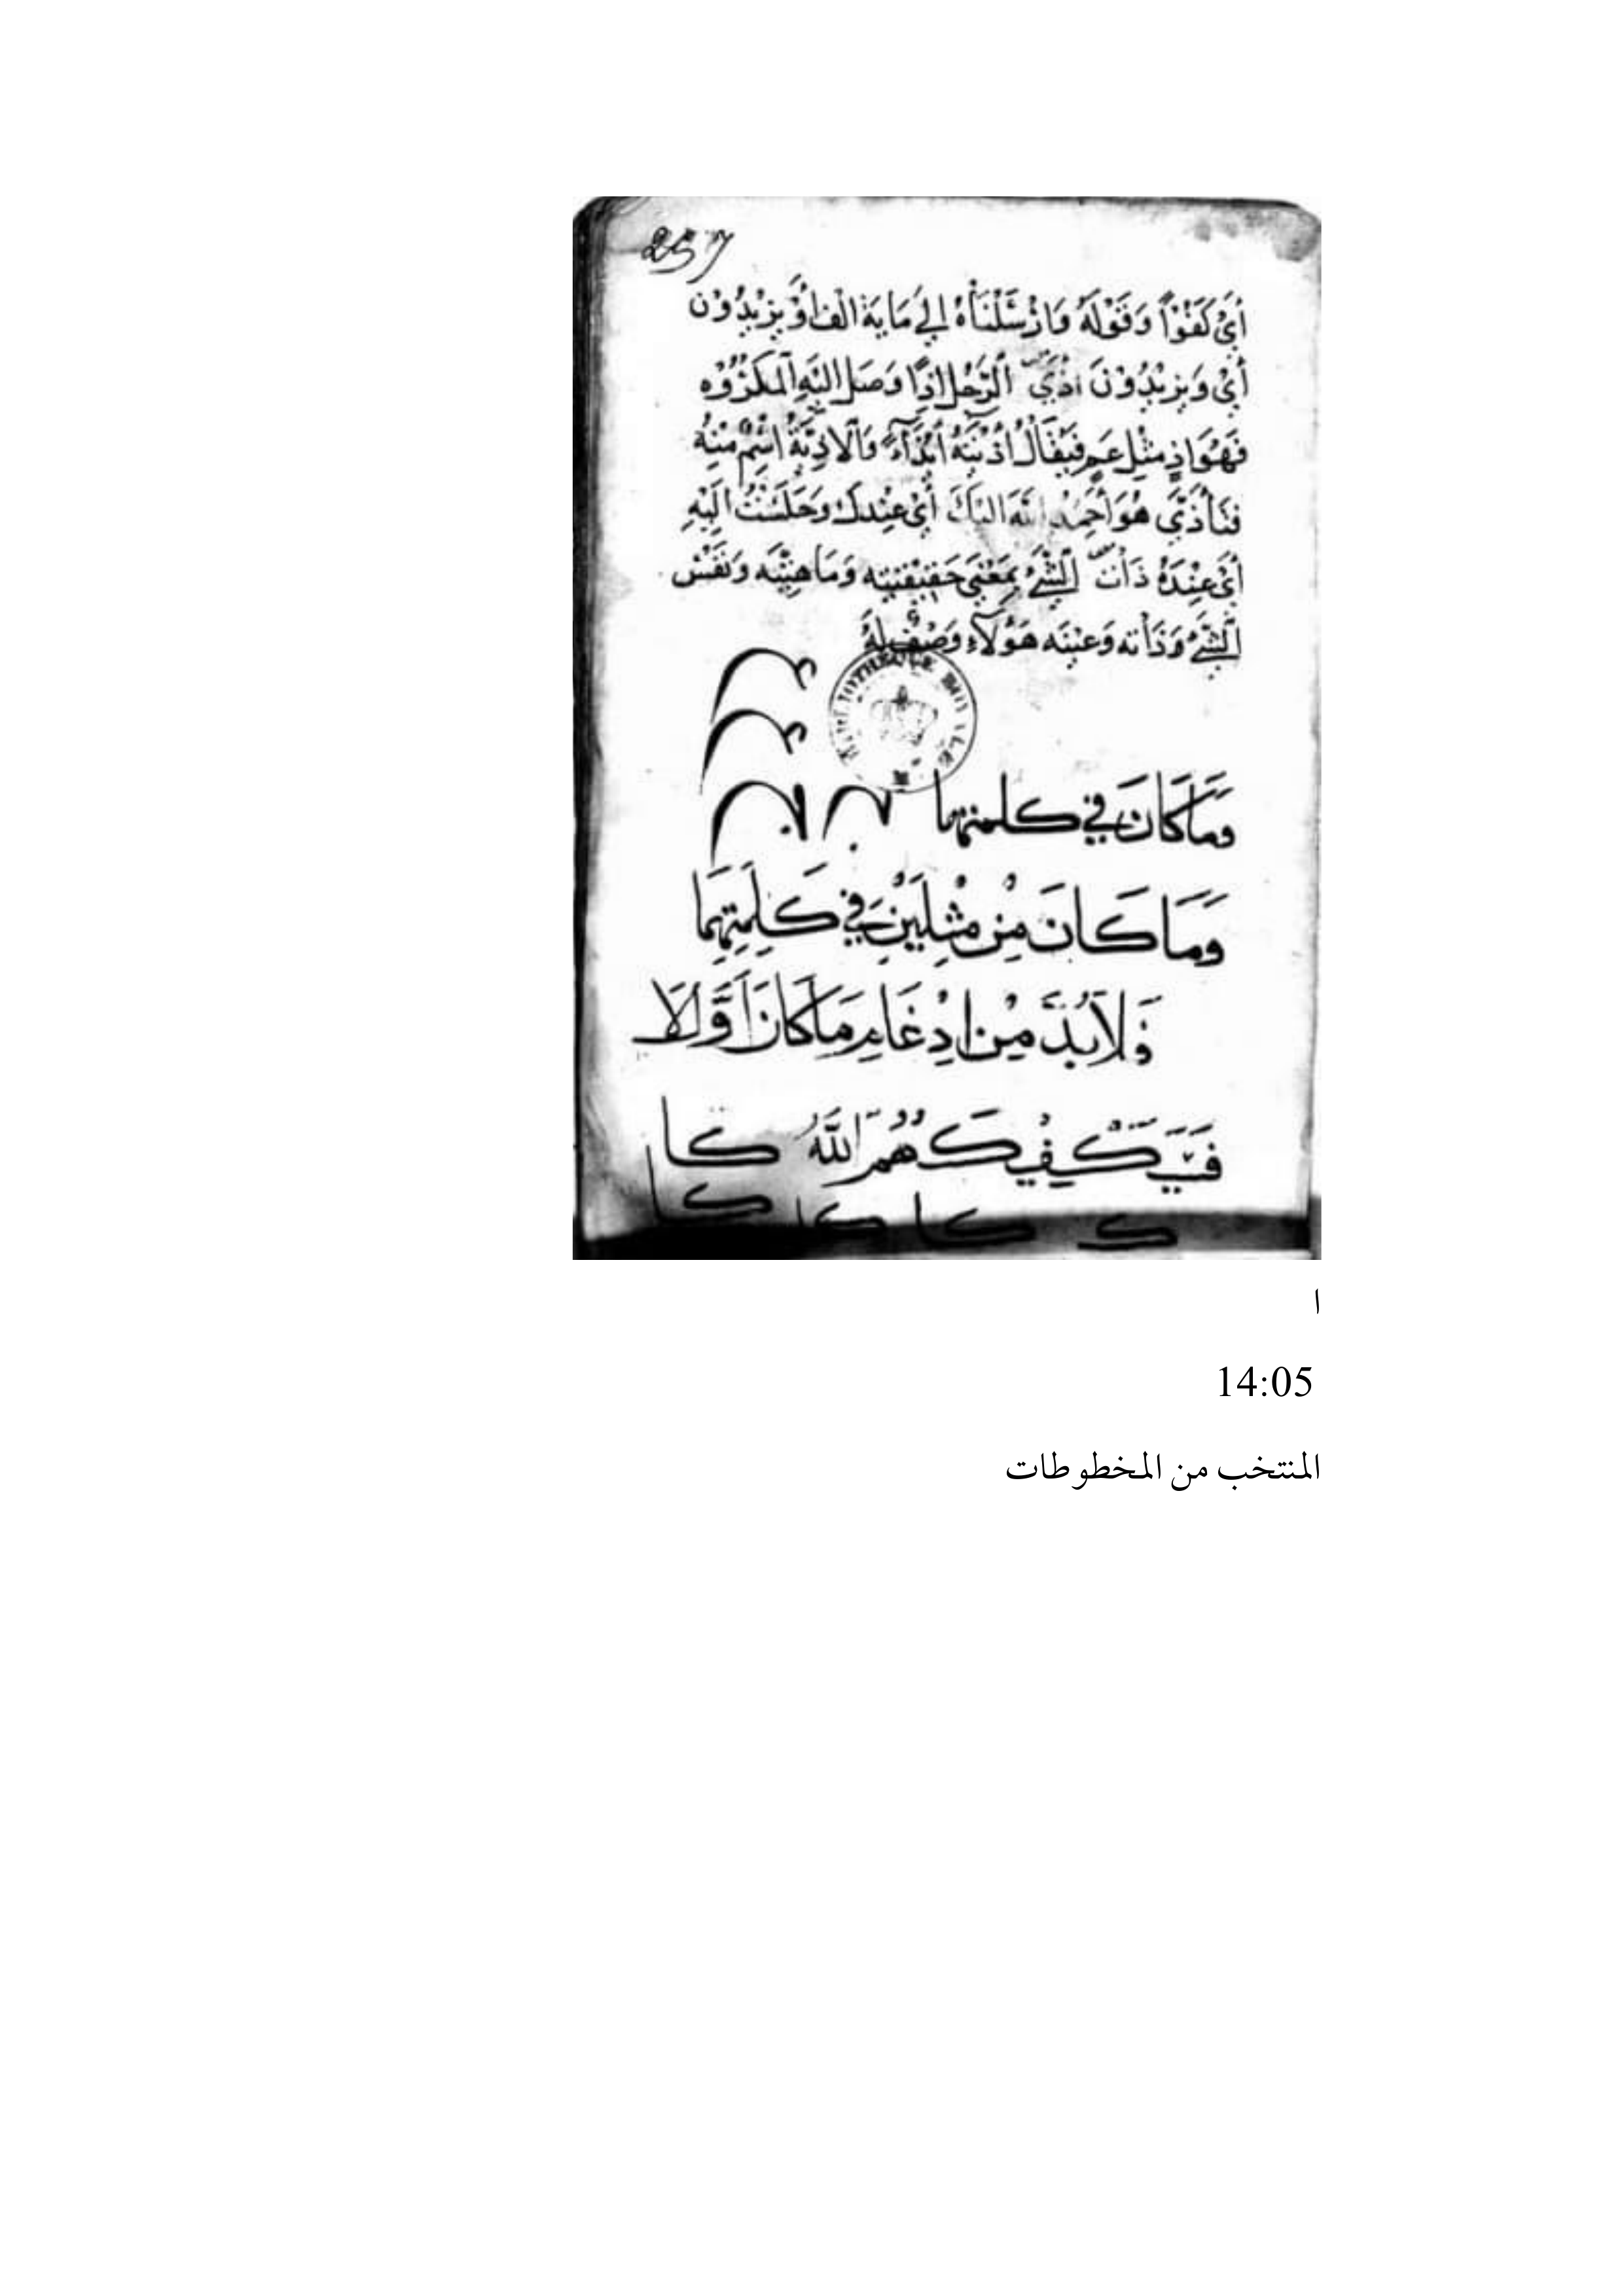 257
أَيْ كَفُوْاً وَقَوْلَهُ وَارْسَلْنَاهُ إلى مَايَة الْف أَوْ يَزِيْدُوْن
أَيْ وَيزيْدُوْنَ أذي الرَّجُل اذا وَصَل اليْهِ المكْرُوْه
فَهُوَ اذٍ مثْل عَمٍ فيُقَالُ أذيْتهُ ايْذَآءً وَالاذِيَّةُ اسْم منْهُ
فتأذّي هُوَ أحْمَدُ اللَّه اليْكَ أيْ عِنْدك وَجَلَسْتُ الَيْهِ
أيْ عِنْدَهُ ذَات الشَّيْ بمَعْنَى حَقِيْقتِه وَمَاهِيّتِه وَنَفْس
الشَّيْ وَذَاته وَعَيْنه هَؤلآءِ
BIBLIOTHEQUE
وَمَا كَانَ في كلمتهما
وَمَا كَانَ مِنْ مثْلَيْنِ في كَلِمَتِهِمَا
فَلاَ بُدَّ مِنْ ادْغَامِ مَا كَانَ أَوَّلا
فسَيَكْفِيْكَهُمُ اللَّهُ كا
كا كا كا ك
ا
14:05
المنتخب من المخطوطات